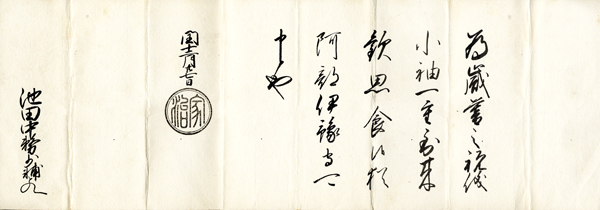 為歳暮之祝儀
小袖一重到来
歓思食候猶
阿部伊豫守可
申也
閏十二月日
家治
池田中務少輔とのへ